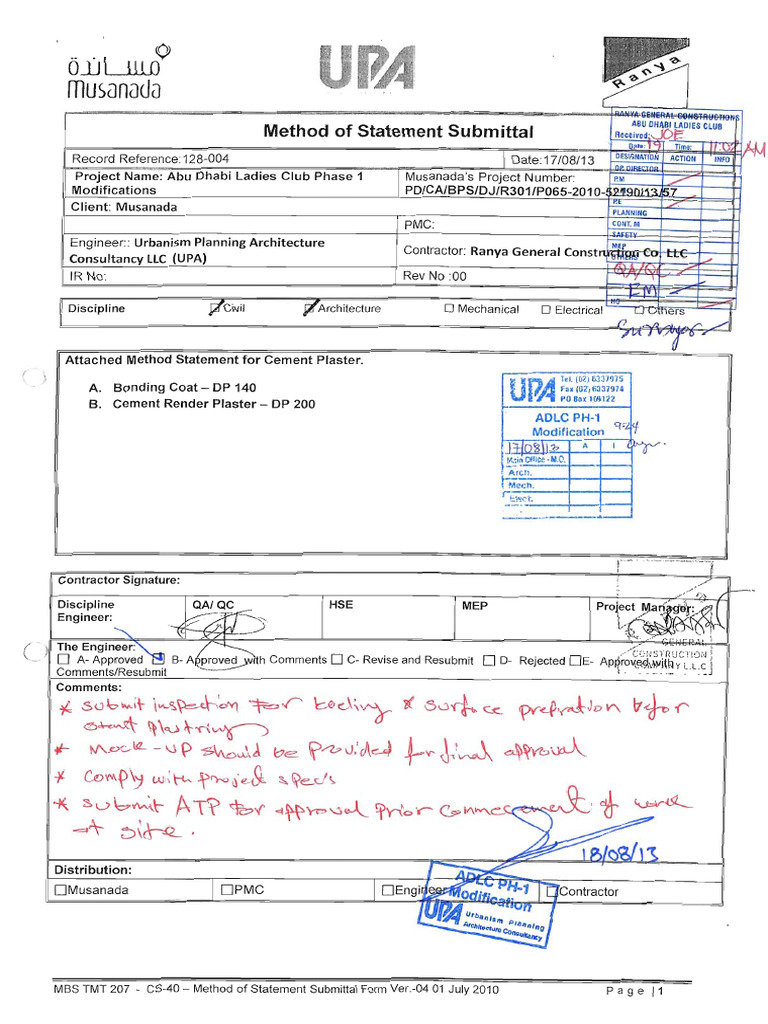 مساندة
musanada
UPA
Ranya
Method of Statement Submittal
RANYA GENERAL CONSTRUCTIONS
ABU DHABI LADIES CLUB
Received: JOE
Date: 19 Time: 11:02 AM
DESIGNATION ACTION INFO
DP. DIRECTOR
P.M
P.E
PLANNING
CONT. M
SAFETY
MEP
OTHERS
QA/QC
EM
HO
Record Reference:128-004
Date:17/08/13
Project Name: Abu Dhabi Ladies Club Phase 1
Modifications
Musanada's Project Number:
PD/CA/BPS/DJ/R301/P065-2010-52190/13/57
Client: Musanada
PMC:
Engineer:: Urbanism Planning Architecture
Consultancy LLC (UPA)
Contractor: Ranya General Construction Co. LLC
IR No:
Rev No :00
Discipline Civil Architecture Mechanical Electrical Others
Surveyor
Attached Method Statement for Cement Plaster.
A. Bonding Coat – DP 140
B. Cement Render Plaster – DP 200
UPA
Tel. (02) 6337975
Fax (02) 6337974
PO Box 109122
ADLC PH-1
Modification
9:44
17/08/13 A I
Main Office - M.D.
Arch.
Mech.
Elect.
Contractor Signature:
Discipline
Engineer:
QA/ QC
HSE
MEP
Project Manager:
GENERAL
CONSTRUCTION
COMPANY L.L.C
The Engineer:
A- Approved B- Approved with Comments C- Revise and Resubmit D- Rejected E- Approved with
Comments/Resubmit
Comments:
* Submit inspection for & surface prepration befor
start plastring
* Mock-up should be provided for final approval
* Comply with project spec's
* Submit ATP for approval prior commecement of work
at site.
18/08/13
Distribution:
Musanada PMC Engineer Contractor
ADLC PH-1
Modification
UPA
Urbanism Planning
Architecture Consultancy
MBS TMT 207 - CS-40 – Method of Statement Submittal Form Ver.-04 01 July 2010
Page |1